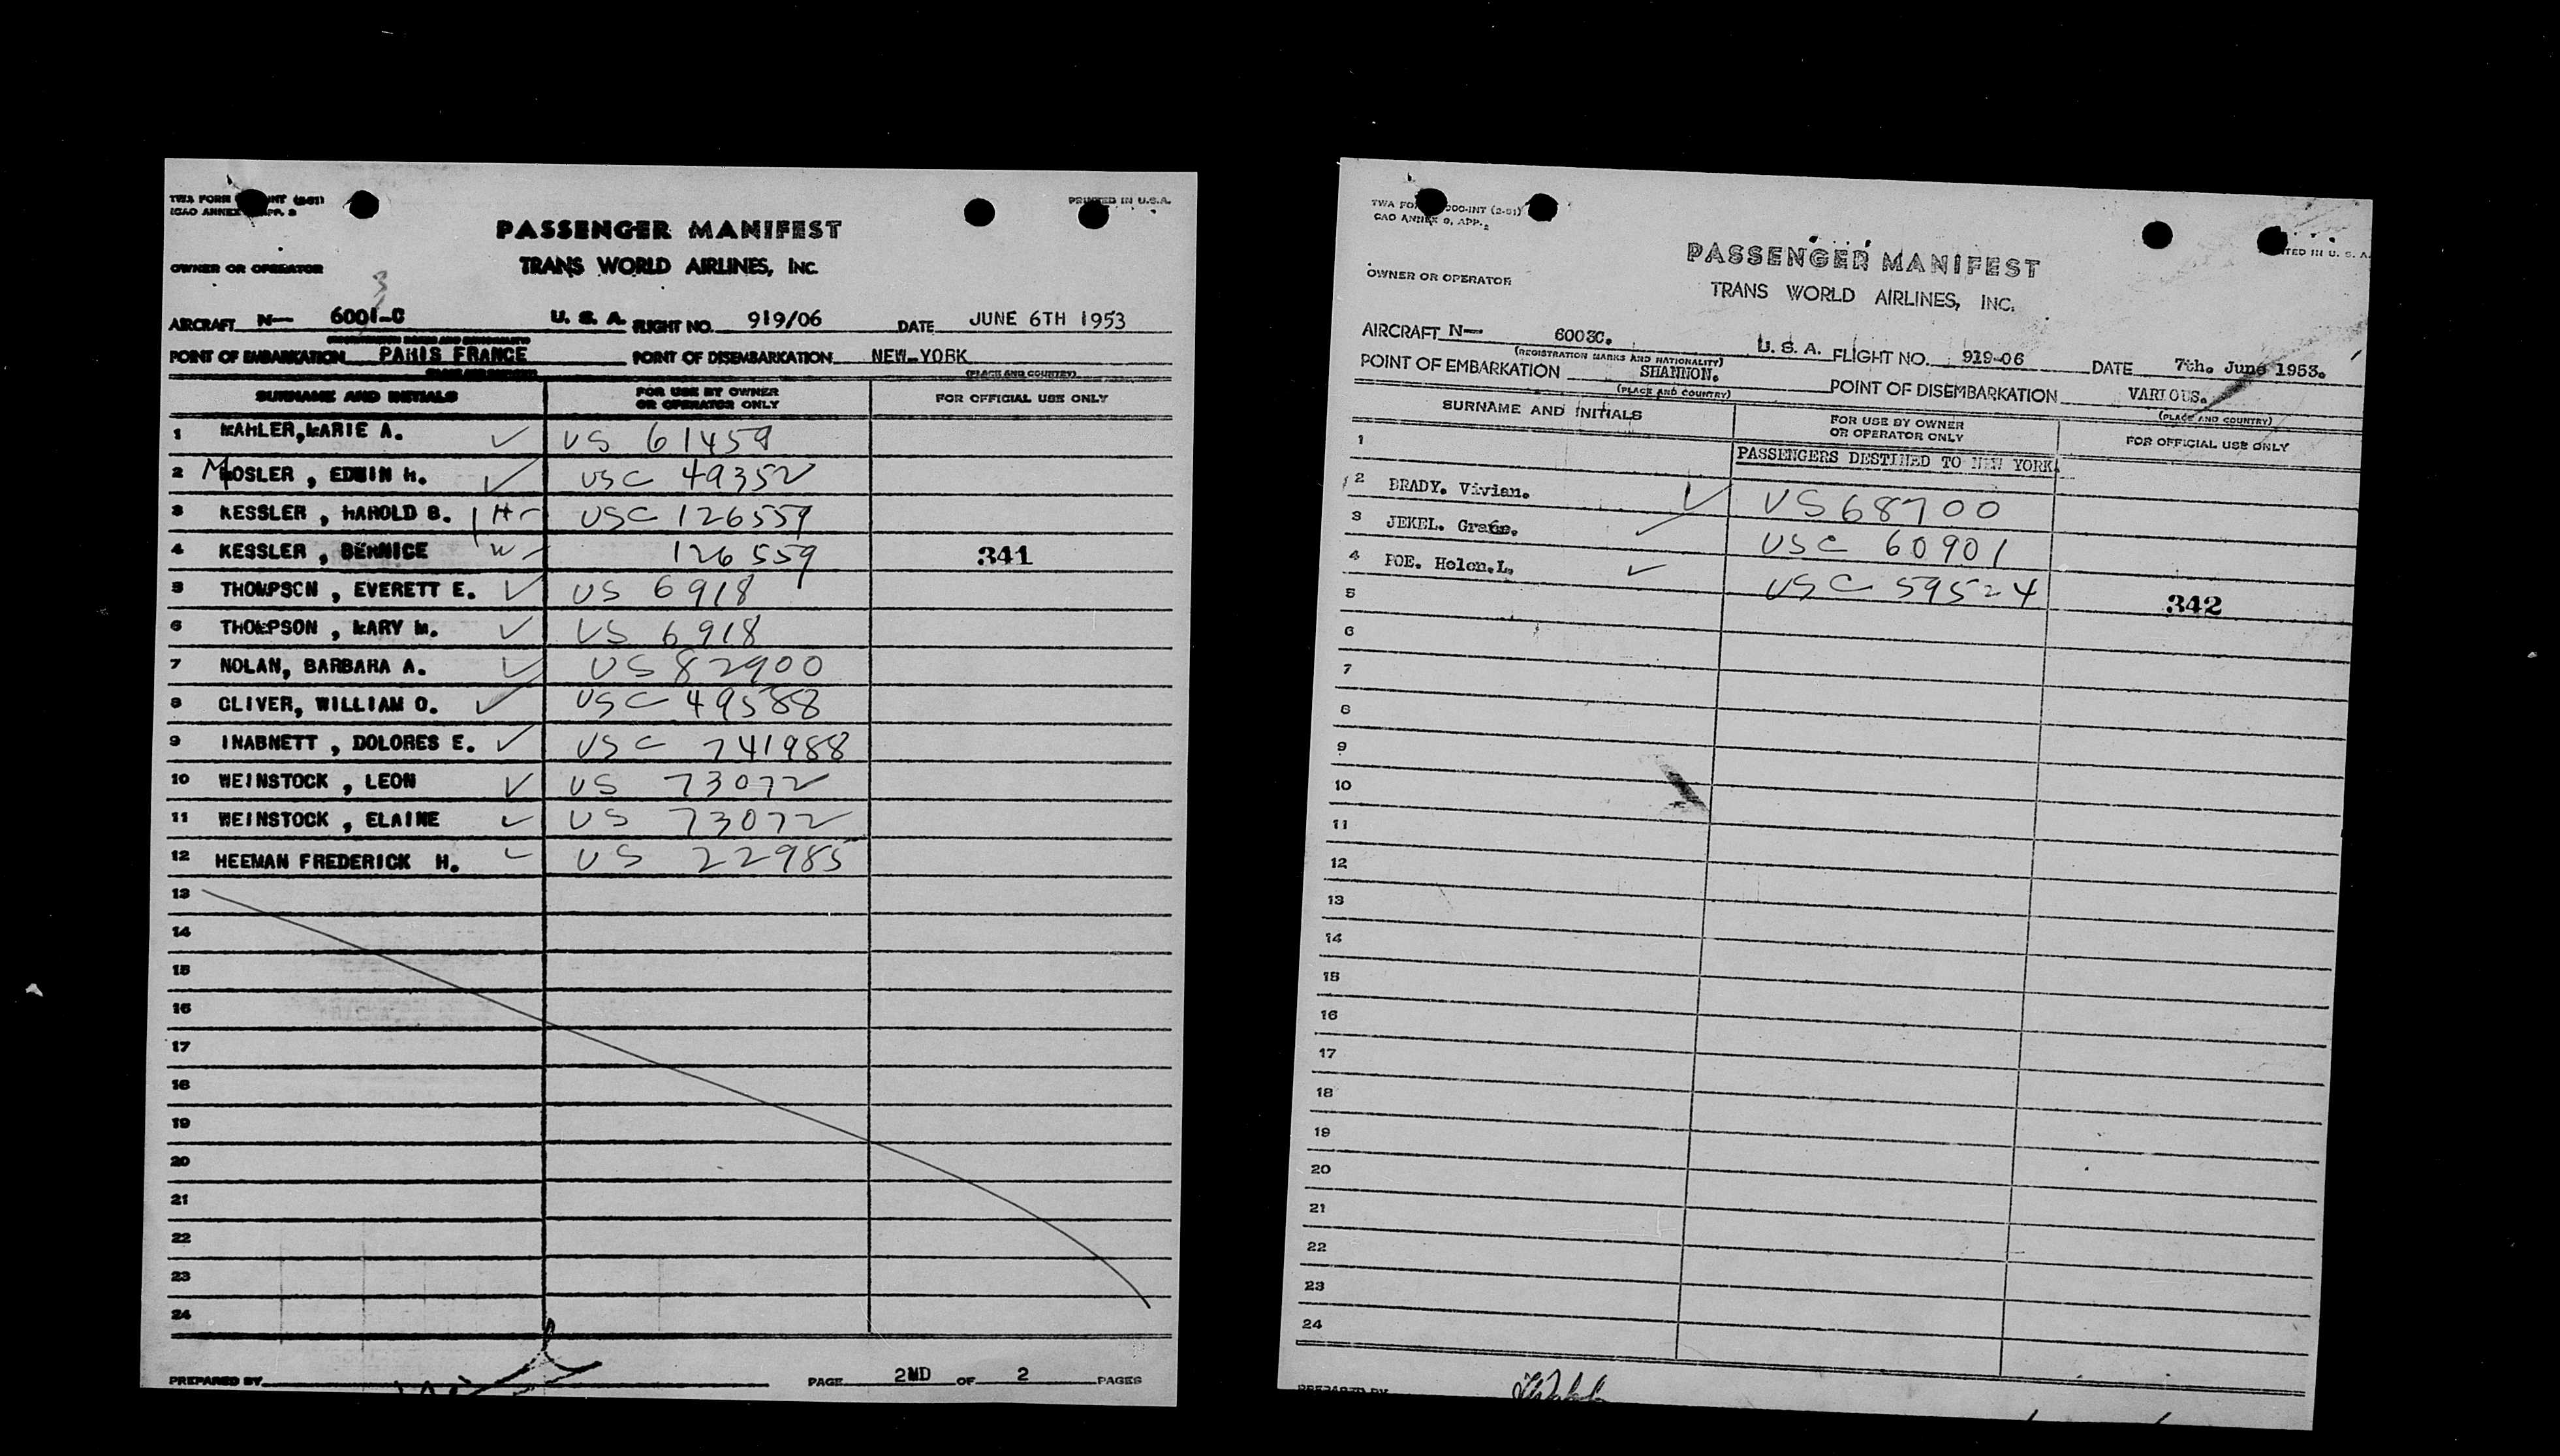 TWA FORM INT (2-51)
ICAO ANNEX APP. 2
PRINTED IN U.S.A.
PASSENGER MANIFEST
OWNER OR OPERATOR TRANS WORLD AIRLINES, INC.
3
AIRCRAFT N- 6001-C U. S. A. FLIGHT NO. 919/06 DATE JUNE 6TH 1953
(REGISTRATION MARKS AND NATIONALITY)
POINT OF EMBARKATION PARIS FRANCE POINT OF DISEMBARKATION NEW-YORK
(PLACE AND COUNTRY) (PLACE AND COUNTRY)
SURNAME AND INITIALS FOR USE BY OWNER OR OPERATOR ONLY FOR OFFICIAL USE ONLY
1 MAHLER, MARIE A. ✓ US 61459
2 MOSLER , EDWIN H. ✓ USC 49352
3 KESSLER , HAROLD B. H USC 126559
4 KESSLER , BERNICE W 126559 341
5 THOMPSON , EVERETT E. ✓ US 6918
6 THOMPSON , MARY M. ✓ US 6918
7 NOLAN, BARBARA A. ✓ US 82900
8 CLIVER, WILLIAM O. ✓ USC 49588
9 INABNETT , DOLORES E. ✓ USC 741988
10 WEINSTOCK , LEON ✓ US 73072
11 WEINSTOCK , ELAINE ✓ US 73072
12 HEEMAN FREDERICK H. ✓ US 22985
13
14
15
16
17
18
19
20
21
22
23
24
PREPARED BY PAGE 2ND OF 2 PAGES
TWA FO 000-INT (2-51)
CAO ANNEX 9, APP. 2
TED IN U. S. A.
PASSENGER MANIFEST
OWNER OR OPERATOR TRANS WORLD AIRLINES, INC.
AIRCRAFT N- 6003C. U. S. A. FLIGHT NO. 919-06 DATE 7th. June 1953.
(REGISTRATION MARKS AND NATIONALITY)
POINT OF EMBARKATION SHANNON. POINT OF DISEMBARKATION VARIOUS.
(PLACE AND COUNTRY) (PLACE AND COUNTRY)
SURNAME AND INITIALS FOR USE BY OWNER OR OPERATOR ONLY FOR OFFICIAL USE ONLY
1 PASSENGERS DESTINED TO NEW YORK
2 BRADY. Vivian. ✓ US 68700
3 JEKEL. ✓ USC 60901
4 POE. Helen.L. ✓ USC 59524
5 342
6
7
8
9
10
11
12
13
14
15
16
17
18
19
20
21
22
23
24
PREPARED BY